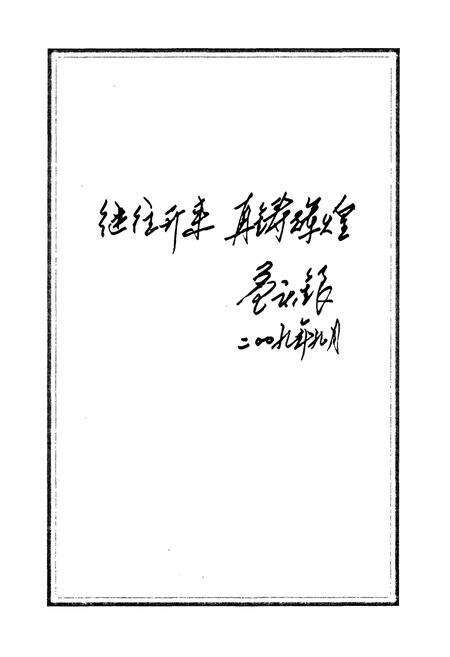 继往开来 再铸辉煌
二〇〇九年九月